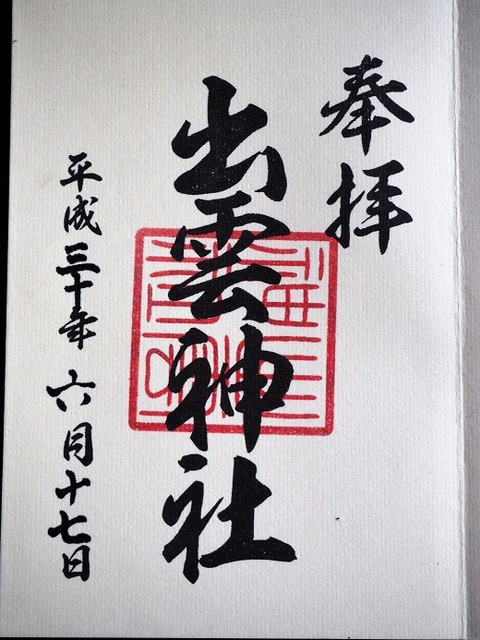 奉拝
出雲神社
平成三十年六月十七日